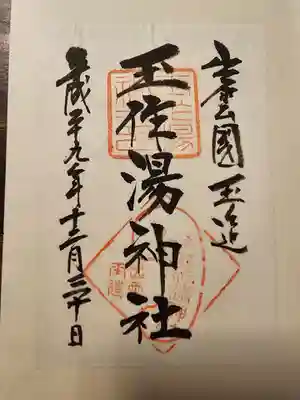 出雲國 玉造
玉作湯神社
平成二十九年十二月三十日